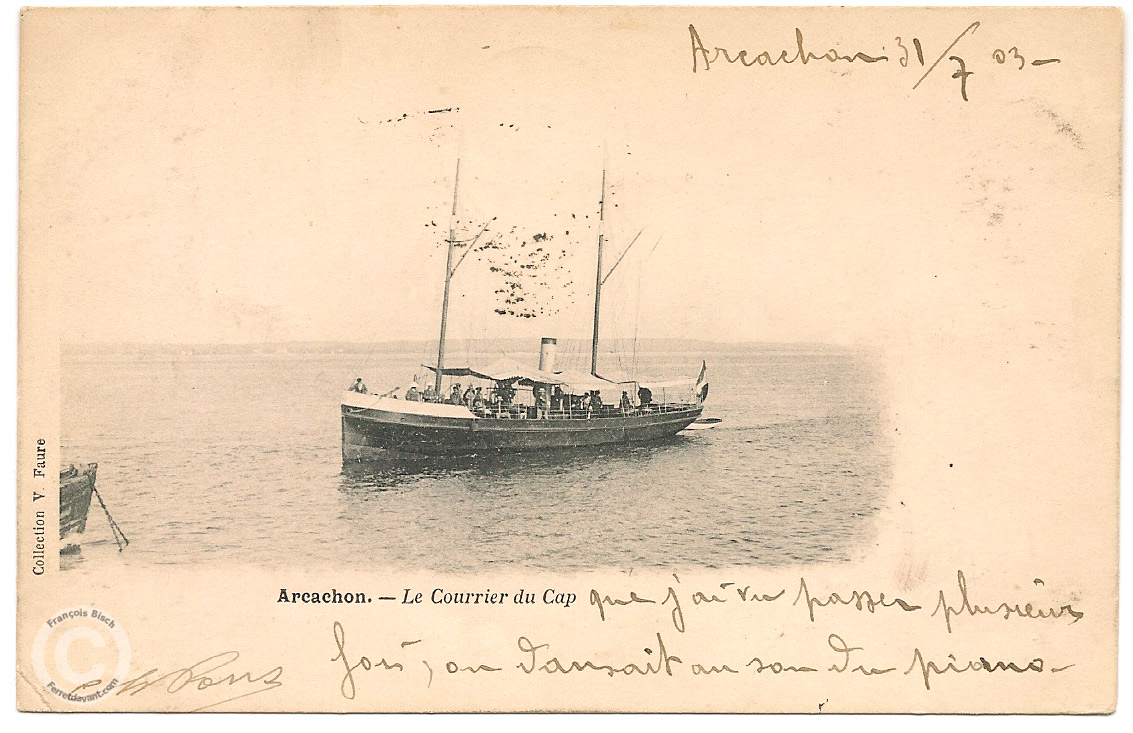 Arcachon 31/7 03-
Collection V. Faure
Arcachon. — Le Courrier du Cap que j'ai vu passer plusieurs
fois, on dansait au son du piano-
Pons
François Bisch
C
Ferretdavant.com